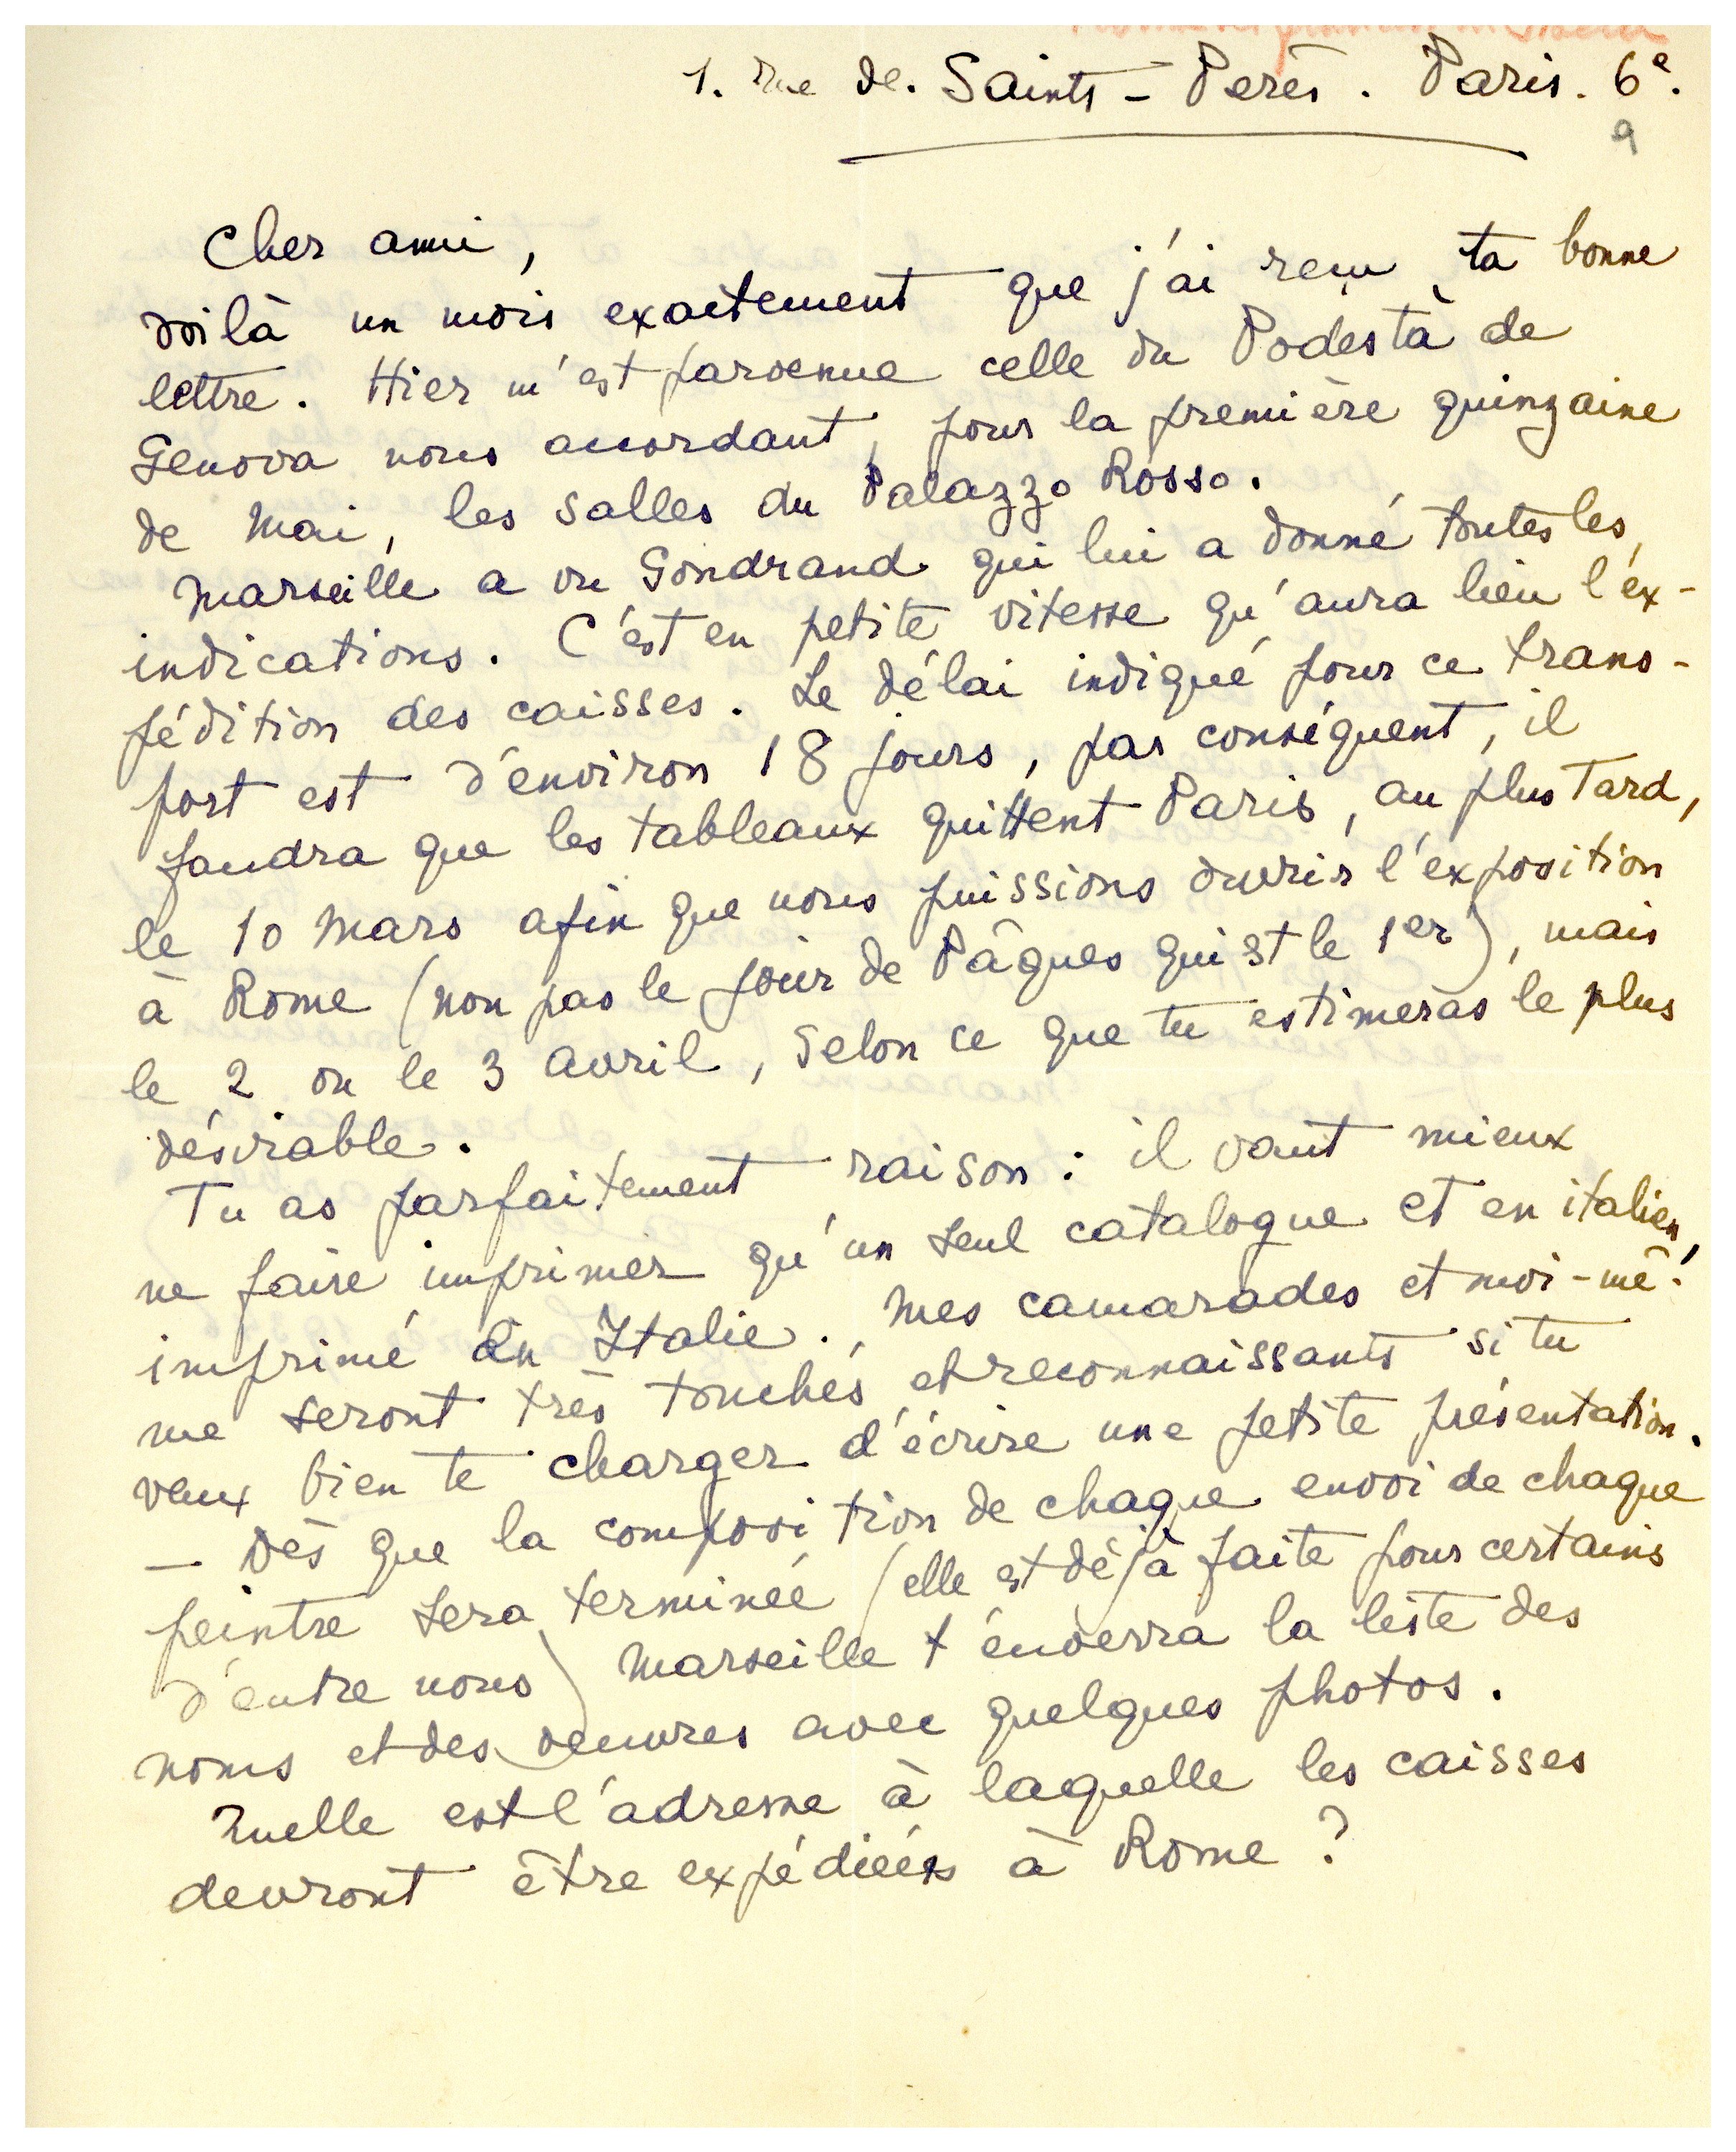 1. rue de. Saints - Pères. Paris. 6e.
9
Cher ami,
voilà un mois exactement que j'ai reçu ta bonne
lettre. Hier m'est parvenue celle du Podestà de
Genova nous accordant, pour la première quinzaine
de Mai, les salles du Palazzo Rosso.
Marseille a vu Gondrand qui lui a donné toutes les
indications. C'est en petite vitesse qu'aura lieu l'ex-
pédition des caisses. Le délai indiqué pour ce trans-
port est d'environ 18 jours, par conséquent, il
faudra que les tableaux quittent Paris, au plus tard,
le 10 Mars afin que nous puissions ouvrir l'exposition
à Rome (non pas le jour de Pâques qui est le 1er), mais
le 2 ou le 3 avril, selon ce que tu estimeras le plus
désirable.
Tu as parfaitement raison : il vaut mieux
ne faire imprimer qu'un seul catalogue et en italien,
imprimé en Italie. Mes camarades et moi-mê-
me seront très touchés et reconnaissants si tu
veux bien te charger d'écrire une petite présentation.
— Dès que la composition de chaque envoi de chaque
peintre sera terminée (elle est déjà faite pour certains
d'entre nous) Marseille t'enverra la liste des
noms et des oeuvres avec quelques photos.
Quelle est l'adresse à laquelle les caisses
devront être expédiées à Rome ?